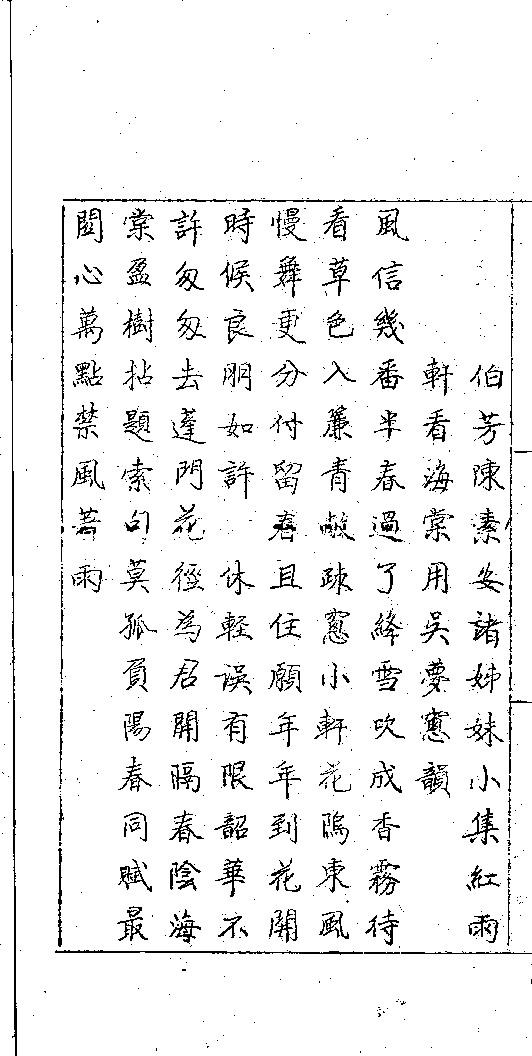 伯芳陳素安諸姊妹小集紅雨
軒看海棠用吳夢窻韻
風信幾番半春過了絳雪吹成香霧待
看草色入簾青敞疎窻小軒花隖東風
慢舞更分付留春且住願年年到花開
時候良朋如許　休輕誤有限韶華不
許匆匆去蓬門花徑為君開隔春陰海
棠盈樹拈題索句莫孤負陽春同賦最
關心萬點禁風若雨